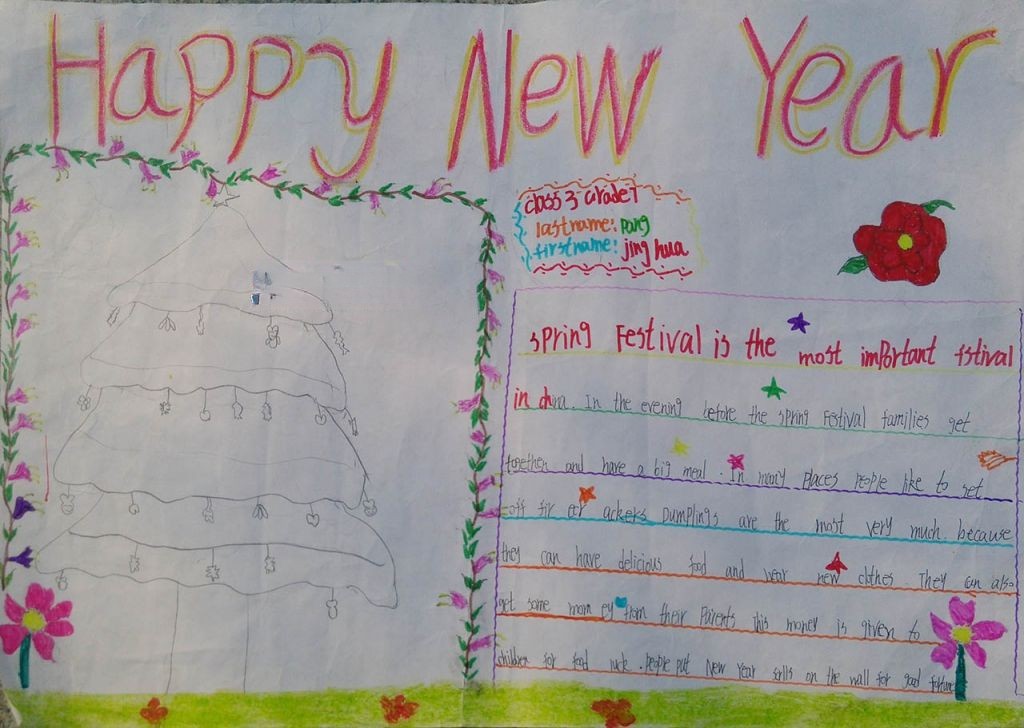 Happy New Year
class 3 Grade7
lastname: pang
firstname: jing hua
spring Festival is the most important fstival
in china. In the evening before the spring Festival families get
together and have a big meal. In many places people like to set
off fir ecr ackers Dumplings are the most very much because
they can have delicious food and wear new clothes. They can also
get some mom ey from their Parents this money is given to
children for food luck. people put New Year on the wall for good fortune